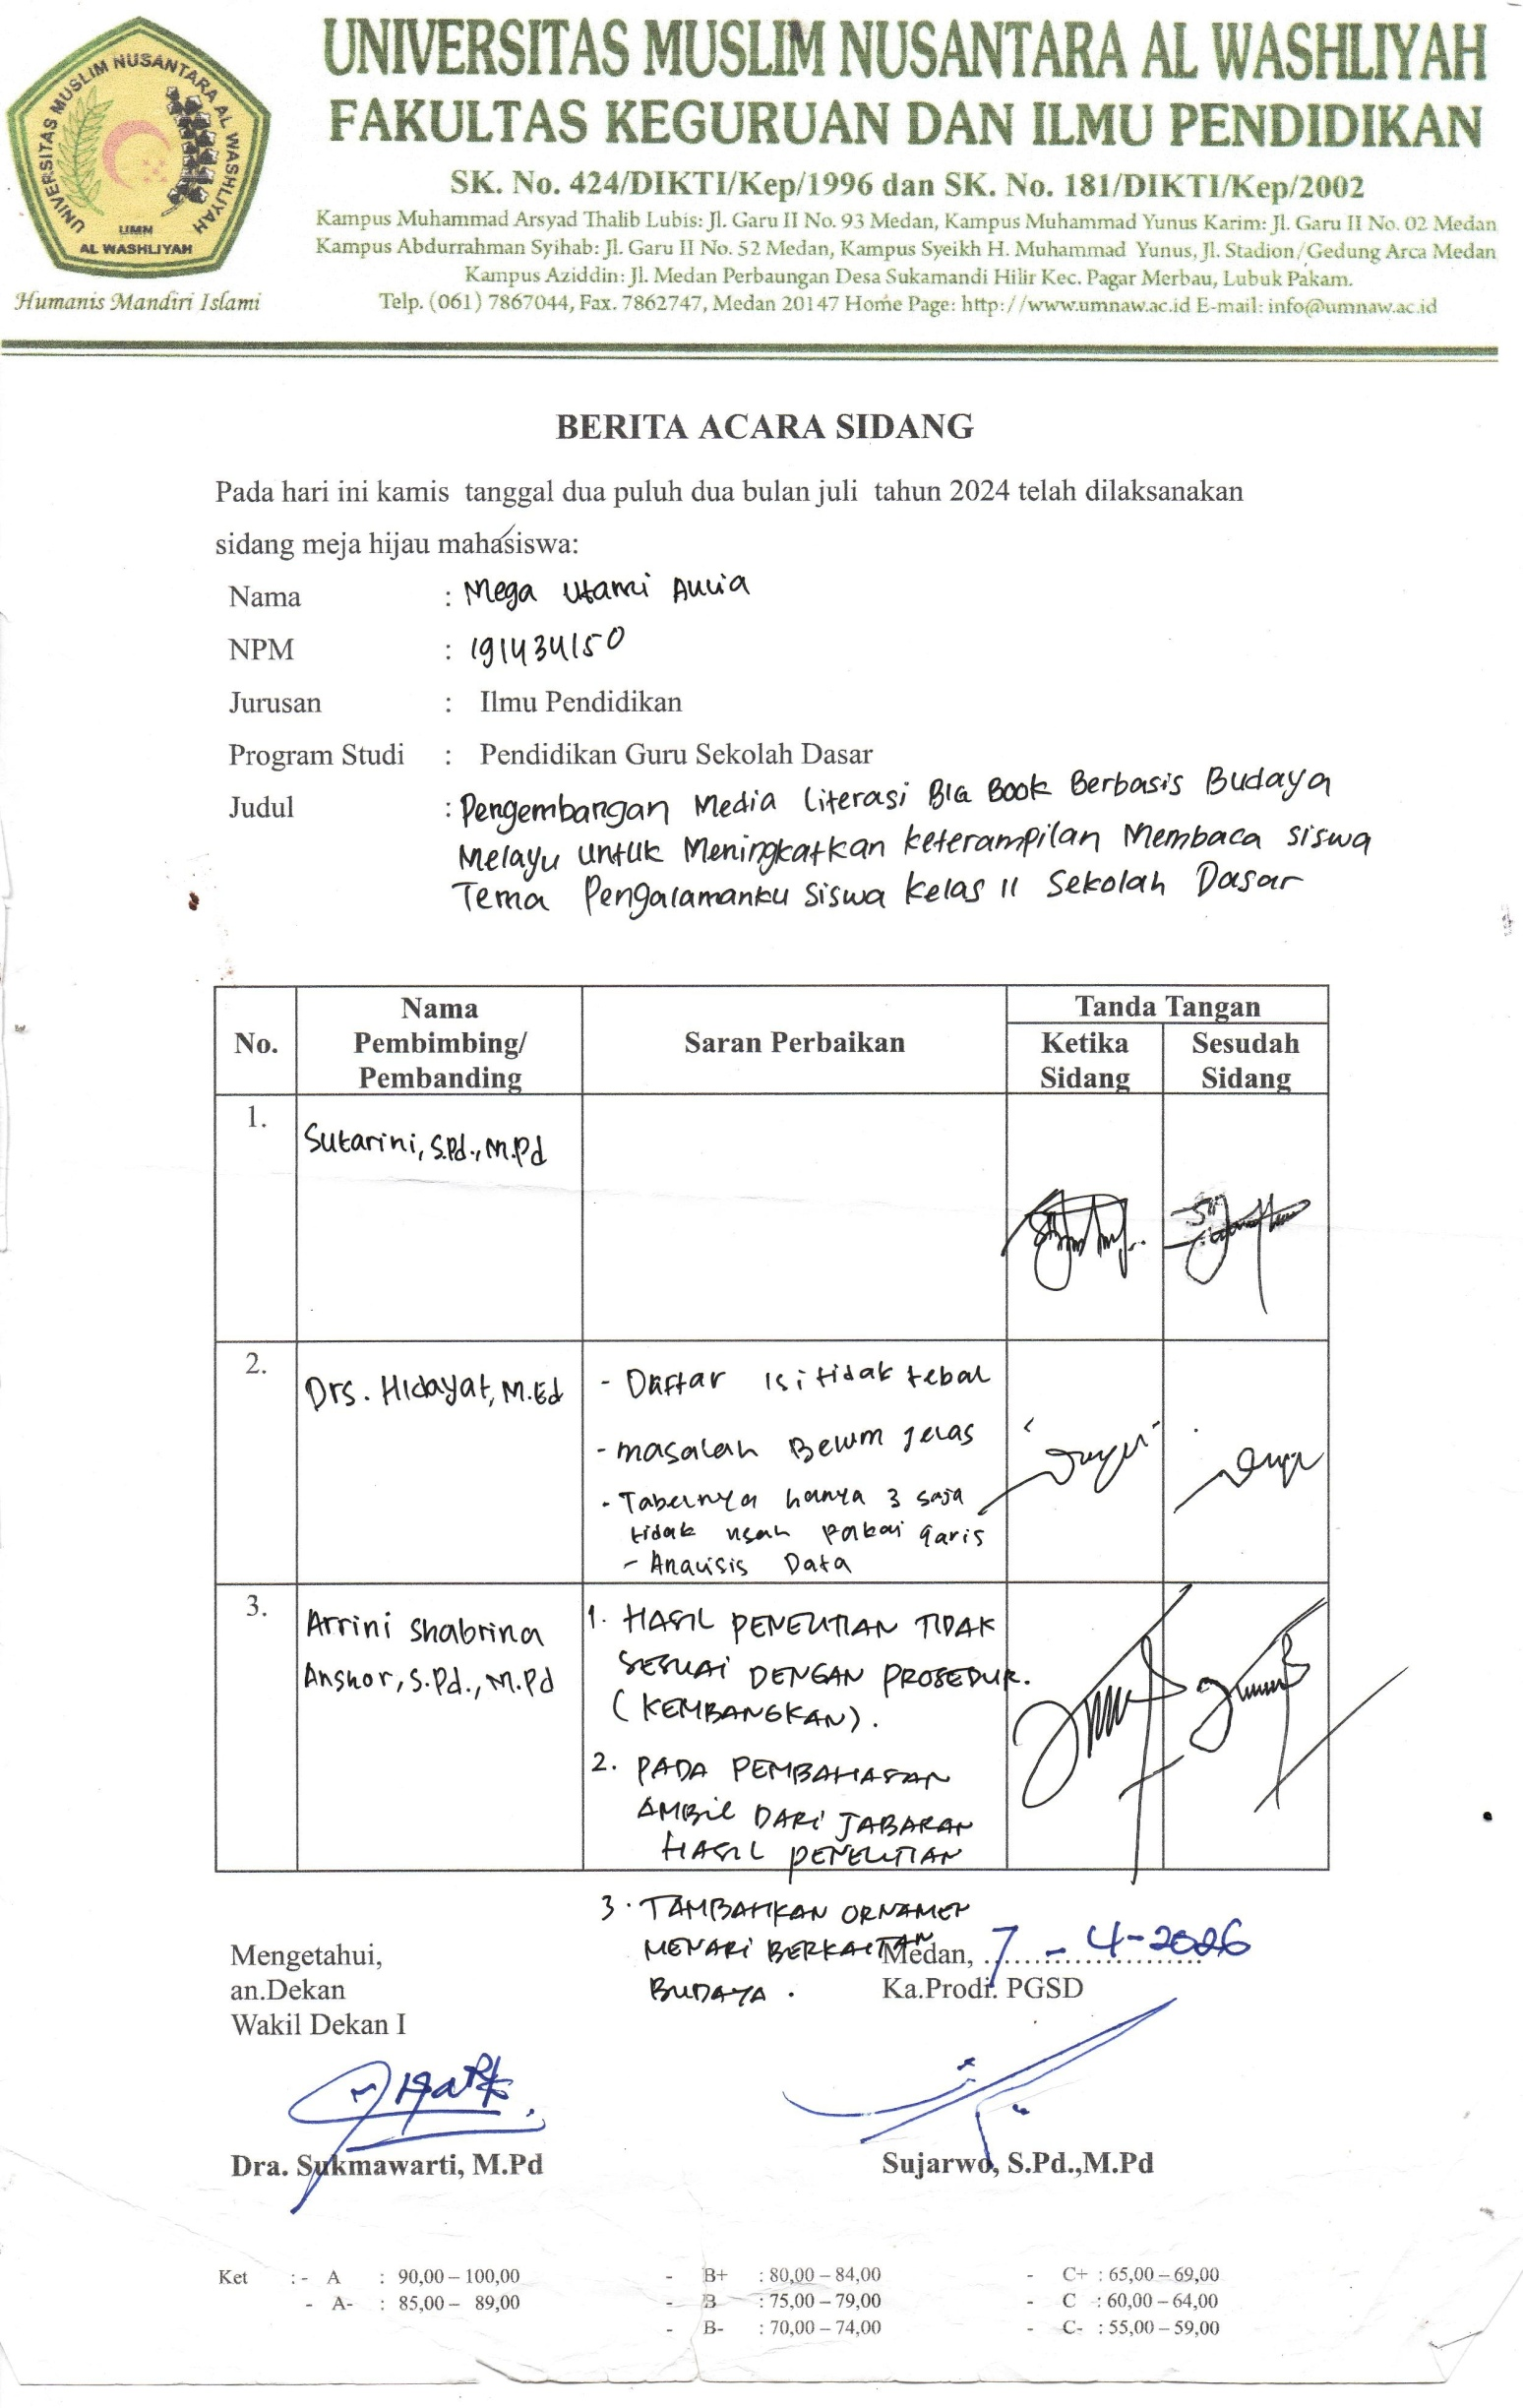 UNIVERSITAS MUSLIM NUSANTARA AL WASHLIYAH
UMN
AL WASHLIYAH
Humanis Mandiri Islami
UNIVERSITAS MUSLIM NUSANTARA AL WASHLIYAH
FAKULTAS KEGURUAN DAN ILMU PENDIDIKAN
SK. No. 424/DIKTI/Kep/1996 dan SK. No. 181/DIKTI/Kep/2002
Kampus Muhammad Arsyad Thalib Lubis: Jl. Garu II No. 93 Medan, Kampus Muhammad Yunus Karim: Jl. Garu II No. 02 Medan
Kampus Abdurrahman Syihab: Jl. Garu II No. 52 Medan, Kampus Syeikh H. Muhammad Yunus, Jl. Stadion/Gedung Arca Medan
Kampus Aziddin: Jl. Medan Perbaungan Desa Sukamandi Hilir Kec. Pagar Merbau, Lubuk Pakam.
Telp. (061) 7867044, Fax. 7862747, Medan 20147 Home Page: http://www.umnaw.ac.id E-mail: info@umnaw.ac.id
BERITA ACARA SIDANG
Pada hari ini kamis tanggal dua puluh dua bulan juli tahun 2024 telah dilaksanakan
sidang meja hijau mahasiswa:
Nama : Mega Utami Aulia
NPM : 191434150
Jurusan : Ilmu Pendidikan
Program Studi : Pendidikan Guru Sekolah Dasar
Judul : Pengembangan Media Literasi BIG BOOK Berbasis Budaya
Melayu untuk Meningkatkan keterampilan Membaca siswa
Tema Pengalamanku Siswa kelas II Sekolah Dasar
No. Nama Pembimbing/ Pembanding Saran Perbaikan Tanda Tangan
Ketika Sidang Sesudah Sidang
1. Sutarini, S.Pd., M.Pd
2. Drs. Hidayat, M.Ed - Daftar isi tidak tebal
- masalah Belum jelas
- Tabelnya hanya 3 saja
tidak usah pakai garis
- Analisis Data
3. Arrini Shabrina
Anshor, S.Pd., M.Pd
1. HASIL PENELITIAN TIDAK
SESUAI DENGAN PROSEDUR.
(KEMBANGKAN).
2. PADA PEMBAHASAN
AMBIL DARI JABARAN
HASIL PENELITIAN
3. TAMBAHKAN ORNAMEN
MENARI BERKAITAN
BUDAYA.
Mengetahui,
an.Dekan
Wakil Dekan I
Dra. Sukmawarti, M.Pd
Medan, 7 - 4-2026
Ka.Prodi. PGSD
Sujarwo, S.Pd.,M.Pd
Ket :- A : 90,00 – 100,00 - B+ : 80,00 – 84,00 - C+ : 65,00 – 69,00
- A- : 85,00 – 89,00 - B : 75,00 – 79,00 - C : 60,00 – 64,00
- B- : 70,00 – 74,00 - C- : 55,00 – 59,00